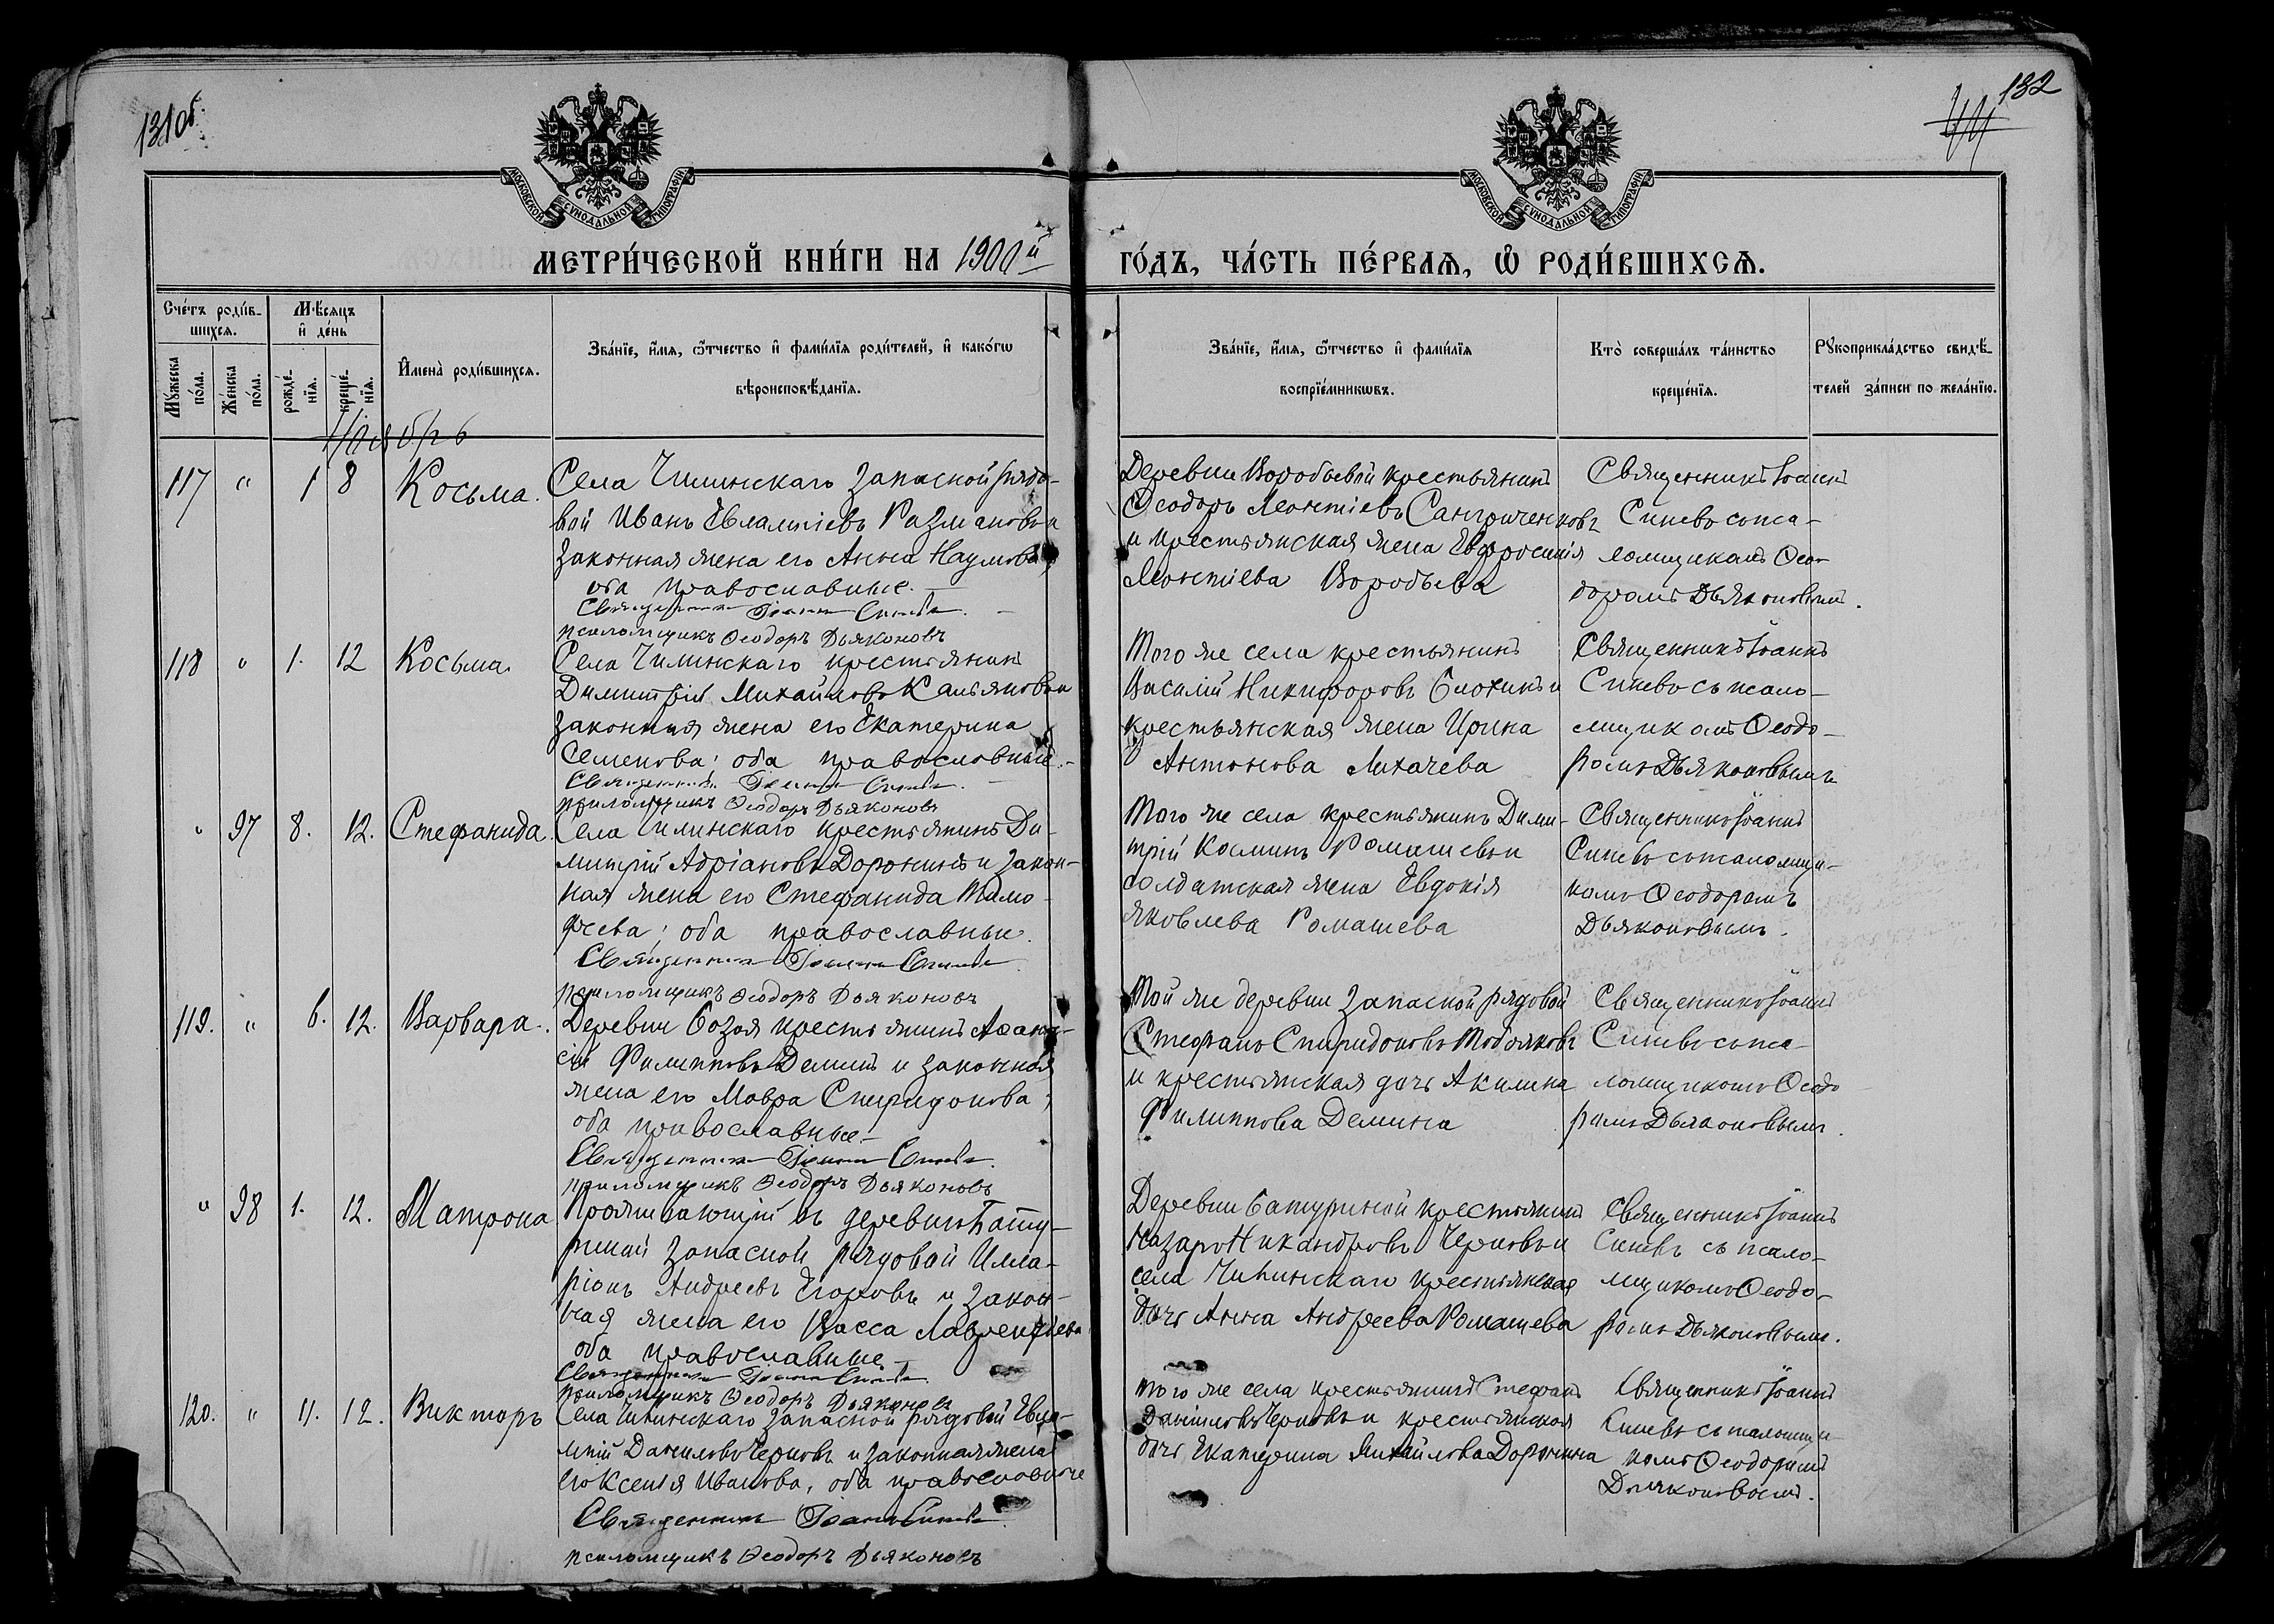 131об.
132
44
МОСКОВСКОЙ СѴНОДАЛЬНОЙ ТИПОГРАФІИ
МОСКОВСКОЙ СѴНОДАЛЬНОЙ ТИПОГРАФІИ
МЕТРИ́ЧЕСКОЙ КНИ́ГИ НА 1900й
ГО́ДЪ, ЧА́СТЬ ПЕ́РВАѦ, Ѡ҆ РОДИ́ВШИХСѦ.
Сче́тъ роди́вшихсѧ.
Мꙋ́жеска по́ла.
Же́нска по́ла.
Мѣ́сяцъ и҆ де́нь
рожде́нїѧ.
креще́нїѧ.
И҆мена̀ роди́вшихсѧ.
Зва́нїе, и҆́мѧ, ѻ҆́тчество и҆ фами́лїѧ роди́телей, и҆ како́гѡ
вѣроисповѣ́данїѧ.
Зва́нїе, и҆́мѧ, ѻ҆́тчество и҆ фами́лїѧ
воспрїе́мникѡвъ.
Кто̀ соверша́лъ та́инство
креще́нїѧ.
Рꙋкоприкла́дство свидѣ́-
телей за́писи по жела́нїю.
Ноябрь
117 " 1 8 Косьма.
Села Чилинскаго запасной рядо-
вой Иванъ Евлампіевъ Размановъ и
законная жена его Анна Наумова,
оба православные.
Священникъ Іоаннъ Синевъ.
псаломщикъ Ѳеодоръ Дьяконовъ
Деревни Воробьевой крестьянинъ
Ѳеодоръ Леонтіевъ
и крестьянская жена Евфросинія
Леонтіева Воробьева
Священникъ Іоаннъ
Синевъ съ пса-
ломщикомъ Ѳео-
доромъ Дьяконовымъ.
118 " 1. 12 Косьма.
Села Чилинскаго крестьянинъ
Димитрій Михайловъ и
законная жена его Екатерина
Семенова; оба православные.
Священникъ Іоаннъ Синевъ.
псаломщикъ Ѳеодоръ Дьяконовъ
Того же села крестьянинъ
Василій Никифоровъ Блохинъ и
крестьянская жена Ирина
Антонова Лихачева
Священникъ Іоаннъ
Синевъ съ псало-
мщикомъ Ѳеодо-
ромъ Дьяконовымъ
" 97 8. 12. Стефанида.
Села Чилинскаго крестьянинъ Ди-
митрій Адріановъ Доронинъ и закон-
ная жена его Стефанида Тимо-
феева; оба православные.
Священникъ Іоаннъ Синевъ
псаломщикъ Ѳеодоръ Дьяконовъ
Того же села крестьянинъ Дими-
трій Косминъ Ромашевъ и
солдатская жена Евдокія
Яковлева Ромашева
Священникъ Іоаннъ
Синевъ съ псаломщи-
комъ Ѳеодоромъ
Дьяконовымъ.
119. " 6. 12. Варвара.
Деревни Базоя крестьянинъ Аѳана-
сій Филипповъ Деминъ и законная
жена его Мавра Спиридонова;
оба православные.
Священникъ Іоаннъ Синевъ.
псаломщикъ Ѳеодоръ Дьяконовъ
Той же деревни запасной рядовой
Стефанъ Спиридоновъ
и крестьянская дочь Акилина
Филиппова Демина
Священникъ Іоаннъ
Синевъ съ пса-
ломщикомъ Ѳеодо
ромъ Дьяконовымъ.
" 98 1. 12. Матрона
Проживающій въ деревни Бату-
риной запасной рядовой Илла-
ріонъ Андреевъ Егоровъ и закон-
ная жена его Васса Лаврентьева
оба православные
Священникъ Іоаннъ Синевъ.
псаломщикъ Ѳеодоръ Дьяконовъ
Деревни Батуриной крестьянинъ
Назаръ Никандровъ Черновъ и
села Чилинскаго крестьянская
дочь Анна Андреева Ромашева
Священникъ Іоаннъ
Синевъ съ псало-
мщикомъ Ѳеодо-
ромъ Дьяконовымъ.
120. " 11. 12. Викторъ
Села Чилинскаго запасной рядовой Евла-
мпій Даниловъ Черновъ и законная жена
его Ксенія Иванова, оба православные
Священникъ Іоаннъ Синевъ.
псаломщикъ Ѳеодоръ Дьяконовъ
Того же села крестьянинъ Стефанъ
Даниловъ Черновъ и крестьянская
дочь Екатерина Михайлова Доронина
Священникъ Іоаннъ
Синевъ съ псаломщи-
комъ Ѳеодоромъ
Дьяконовымъ.